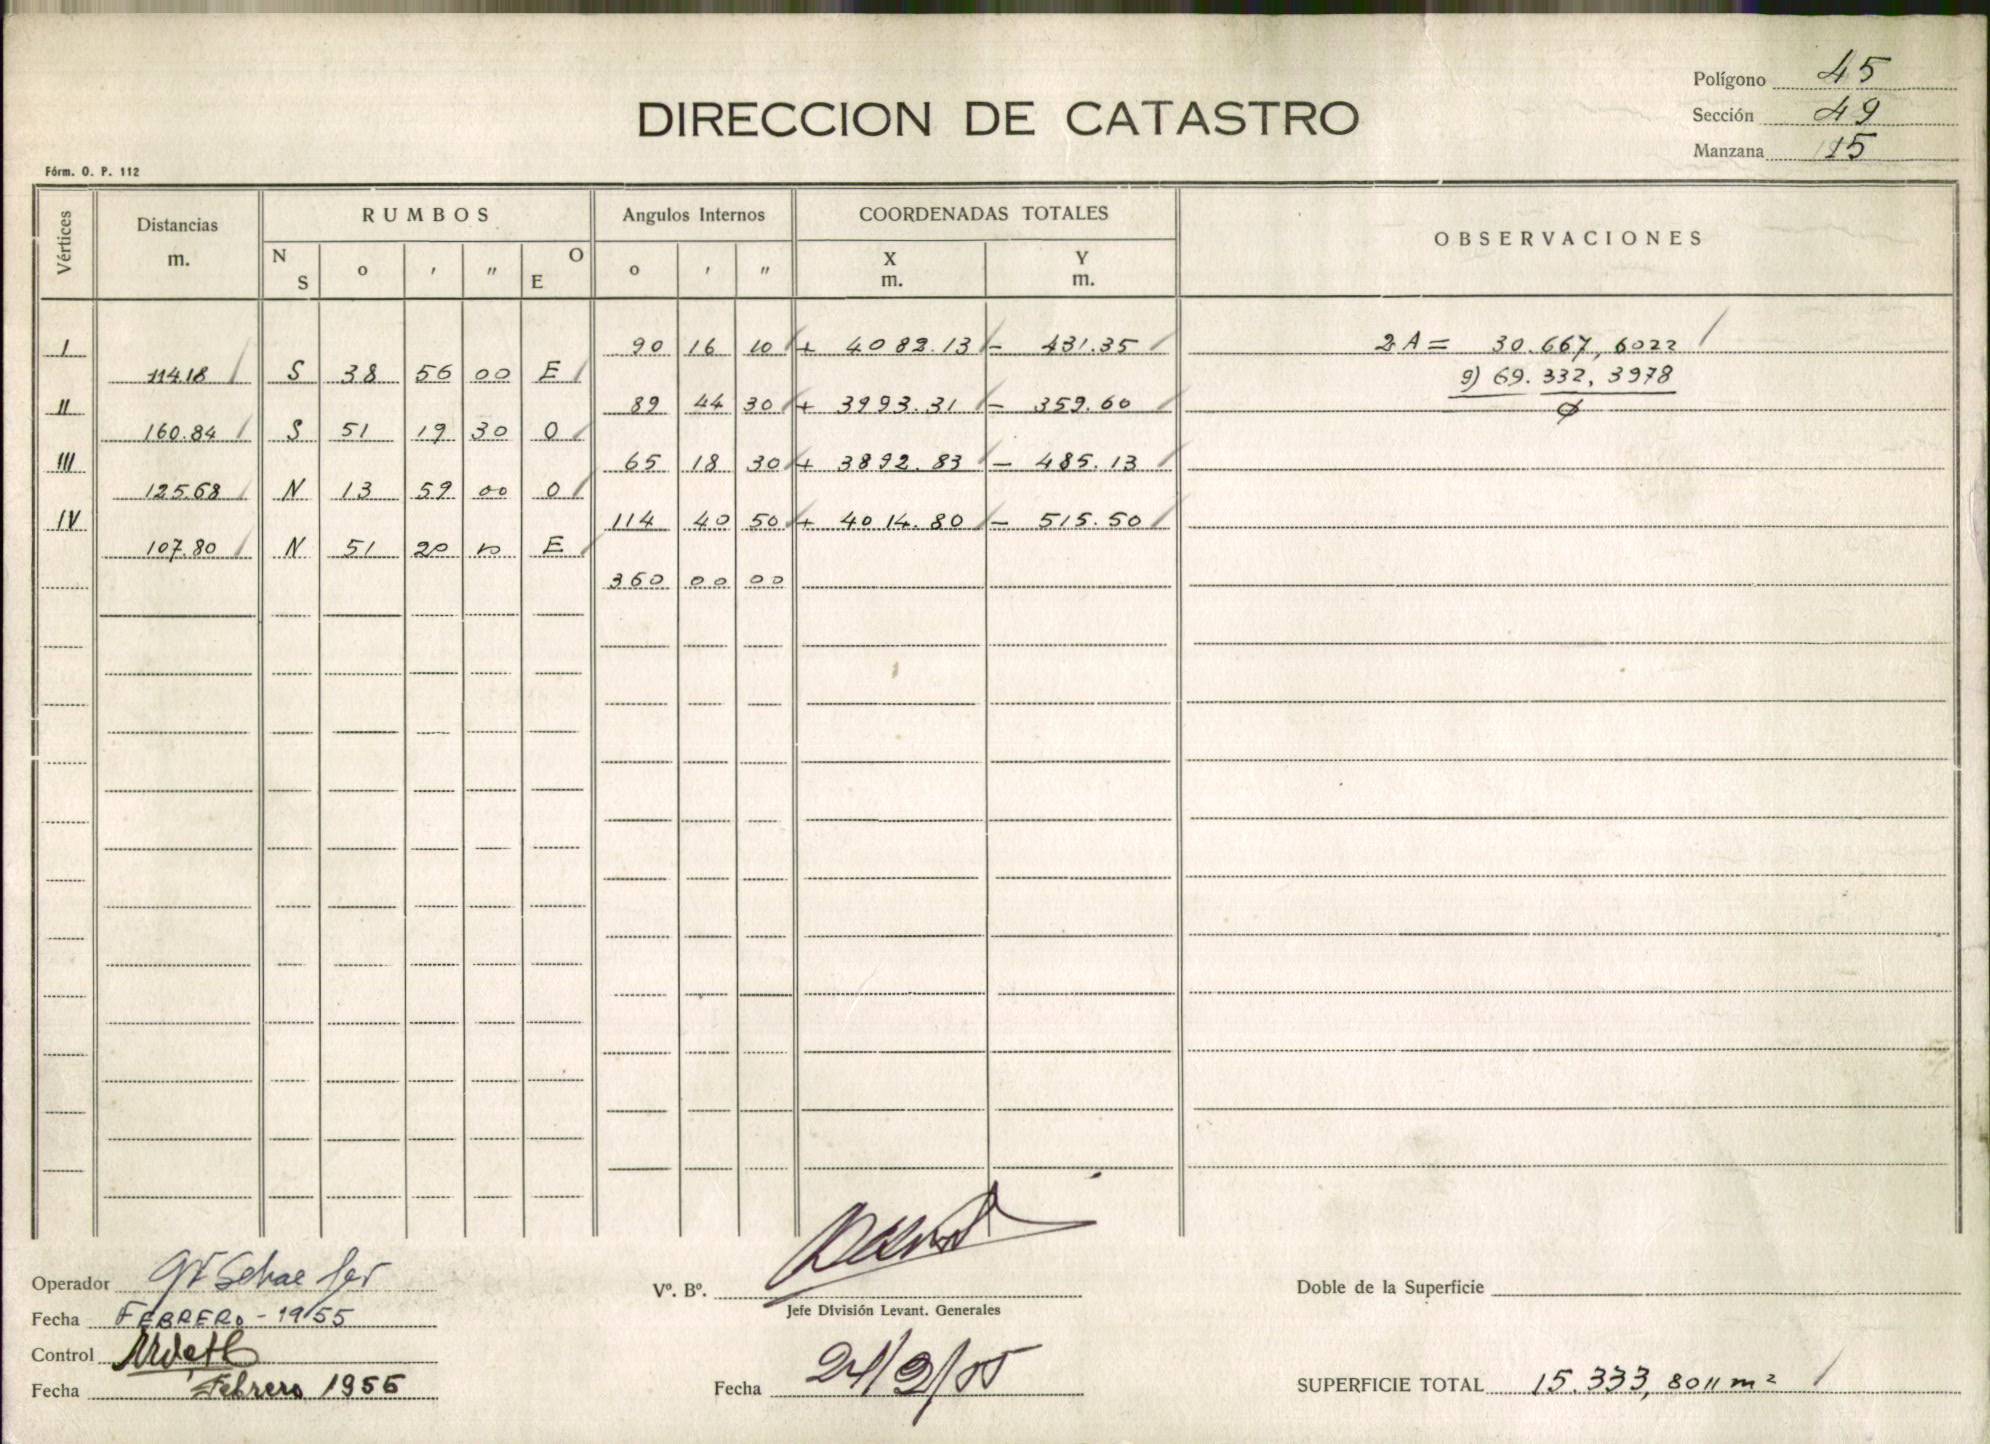 Polígono 45
DIRECCION DE CATASTRO
Sección 49
Manzana 15
Fórm. O. P. 112
Vértices Distancias m. RUMBOS Angulos Internos COORDENADAS TOTALES OBSERVACIONES
N S o ' " O E o ' " X m. Y m.
I 90 16 10 + 4082.13 - 431.35 2A = 30.667,6022
114.18 S 38 56 00 E 9) 69.332,3978
II 89 44 30 + 3993.31 - 359.60 0
160.84 S 51 19 30 O
III 65 18 30 + 3892.83 - 485.13
125.68 N 13 59 00 O
IV 114 40 50 + 4014.80 - 515.50
107.80 N 51 20 10 E
360 00 00
Operador
Vº. Bº.
Doble de la Superficie
Jefe División Levant. Generales
Fecha FEBRERO - 1955
Control
Fecha Febrero 1955
Fecha 24/2/55
SUPERFICIE TOTAL 15.333,8011 m²